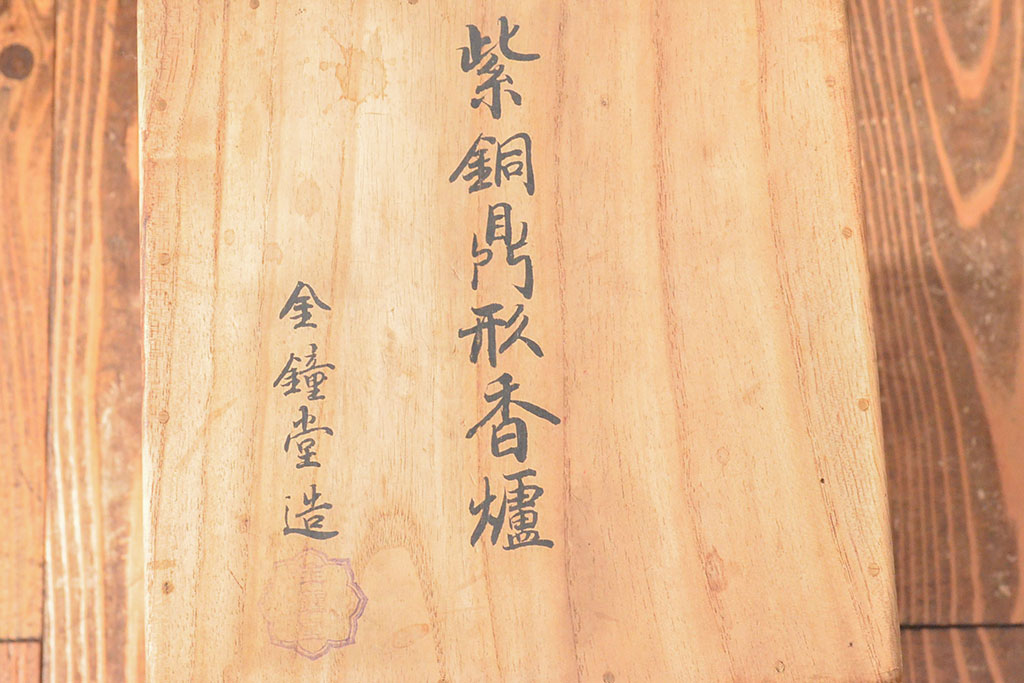 紫銅鼎形香爐
金鐘堂造